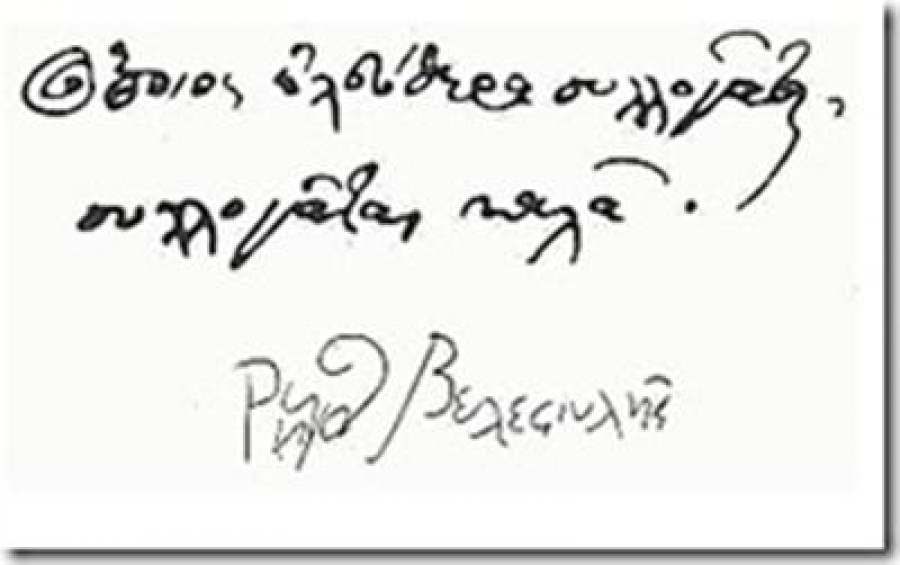 Ὅποιος ἐλεύθερα συλλογᾶται,
συλλογᾶται καλᾶ.
Ρήγας Βελεστινλῆς